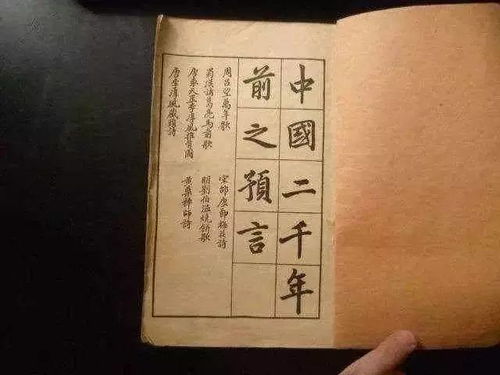 中國二千年
前之預言
周呂望萬年歌
蜀漢諸葛亮馬前課
唐袁天罡李淳風推背圖
唐李淳風藏頭詩
宋邵康節梅花詩
明劉伯溫燒餅歌
黃蘗禪師詩